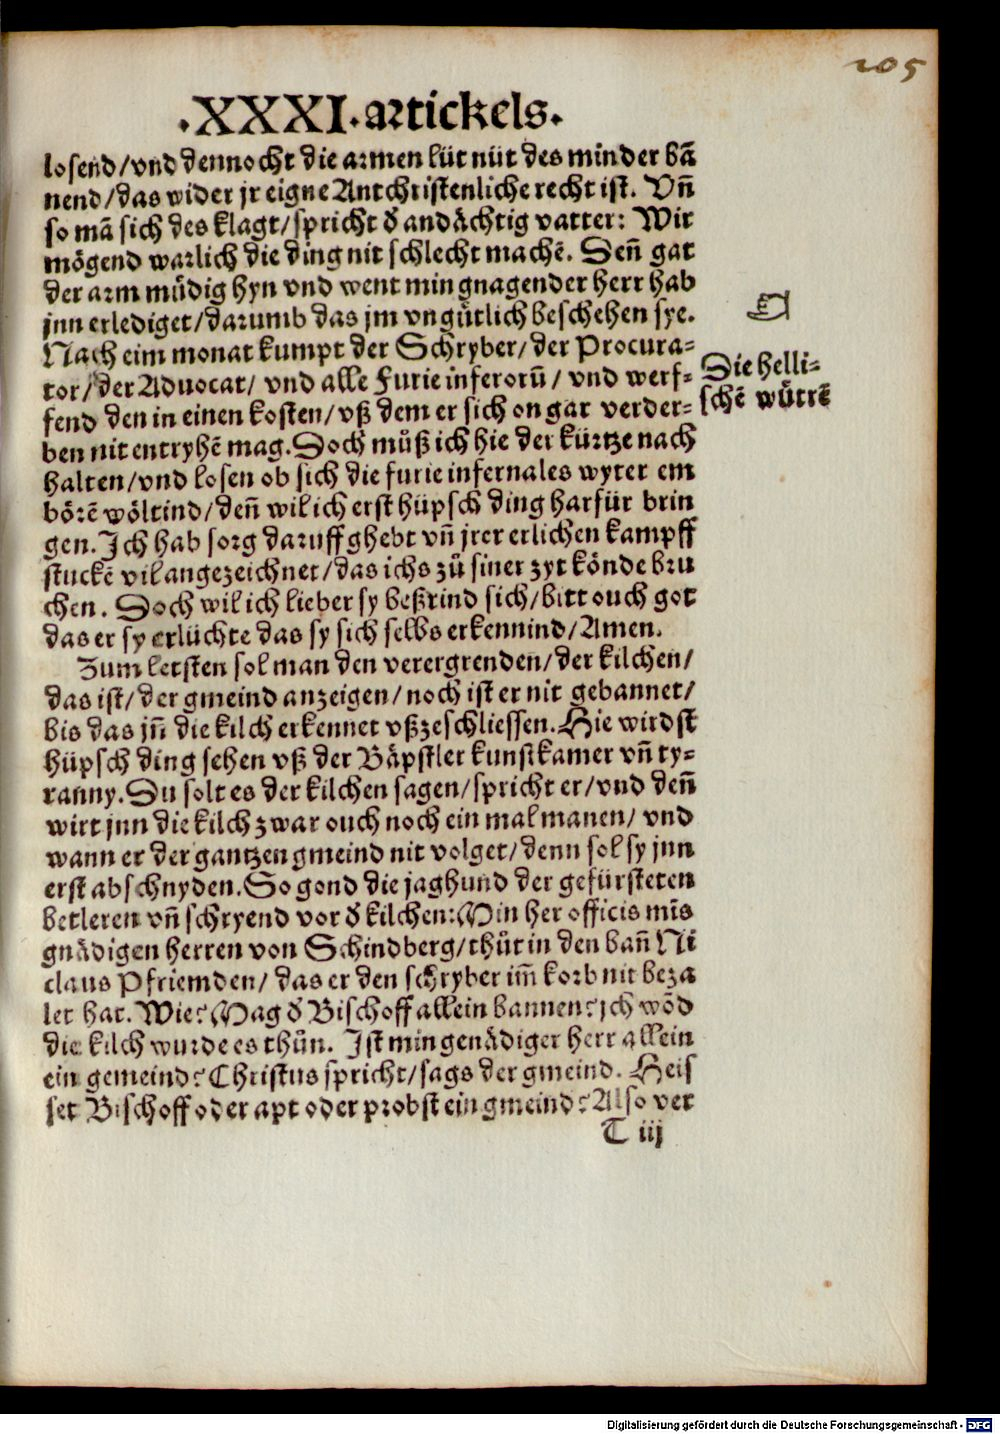 205
·XXXI·artickels·
losend/vnd dennocht die armen lüt nüt des minder bā
nend/das wider jr eigne Antchristenliche recht ist. Vñ
so mā sich des klagt/spricht d̕ andächtig vatter: Wir
mögend warlich die ding nit schlecht machē. Denñ gat
der arm müdig hyn vnd went min gnagender herr hab
jnn erlediget/darumb das jm vngütlich beschehen sye.
Nach eim monat kumpt der Schryber/der Procura-
tor/der Aduocat/ vnd alle Furie inferorū/ vnd werf-
fend den in einen kosten/vß dem er sich on gar verder-
ben nit entryhē mag. Doch müß ich hie der kürtze nach
halten/vnd losen ob sich die furie infernales wyter em
börē wöltind/deñ wil ich erst hüpsch ding harfür brin
gen. Ich hab sorg daruff ghebt vñ jrer erlichen kampff
stuckē vil angezeichnet/das ichs zů siner zyt könde bru
chen. Doch wil ich lieber sy beßrind sich/bitt ouch got
das er sy erlüchte das sy sich selbs erkennind/Amen.
Zum letsten sol man den verergrenden/der kilchen/
das ist/der gmeind anzeigen/noch ist er nit gebannet/
bis das jñ die kilch erkennet vßzeschliessen. Hie wirdst
hüpsch ding sehen vß der Bäpstler kunstkamer vñ ty-
ranny. Du solt es der kilchen sagen/spricht er/vnd deñ
wirt jnn die kilch zwar ouch noch ein mal manen/ vnd
wann er der gantzen gmeind nit volget/denn sol sy jnn
erst abschnyden. So gond die jaghund der gefürsteten
betleren vñ schryend vor d̕ kilchen: Min her officis mīs
gnädigen herren von Schindberg/thůt in den bañ Ni
claus Pfriemden/ das er den schryber im̄ korb nit beza
let hat. Wie? Mag d̕ Bischoff allein bannen? jch wōd
die kilch wurde es thůn. Ist min genädiger herr allein
ein gemeind? Christus spricht/sags der gmeind. Heis
set Bischoff oder apt oder probst ein gmeind? Also ver
T iij
Die helli-
schē wůtrē
Digitalisierung gefördert durch die Deutsche Forschungsgemeinschaft - DFG